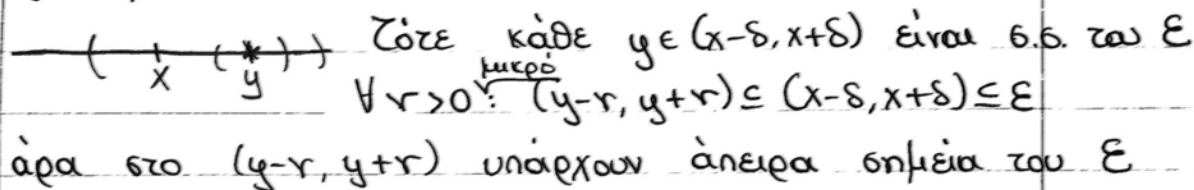 Τότε κάθε y ∈ (x-δ, x+δ) είναι σ.σ. του Ε
x y ∀ r>0 μικρό : (y-r, y+r) ⊆ (x-δ, x+δ) ⊆ Ε
άρα στο (y-r, y+r) υπάρχουν άπειρα σημεία του Ε